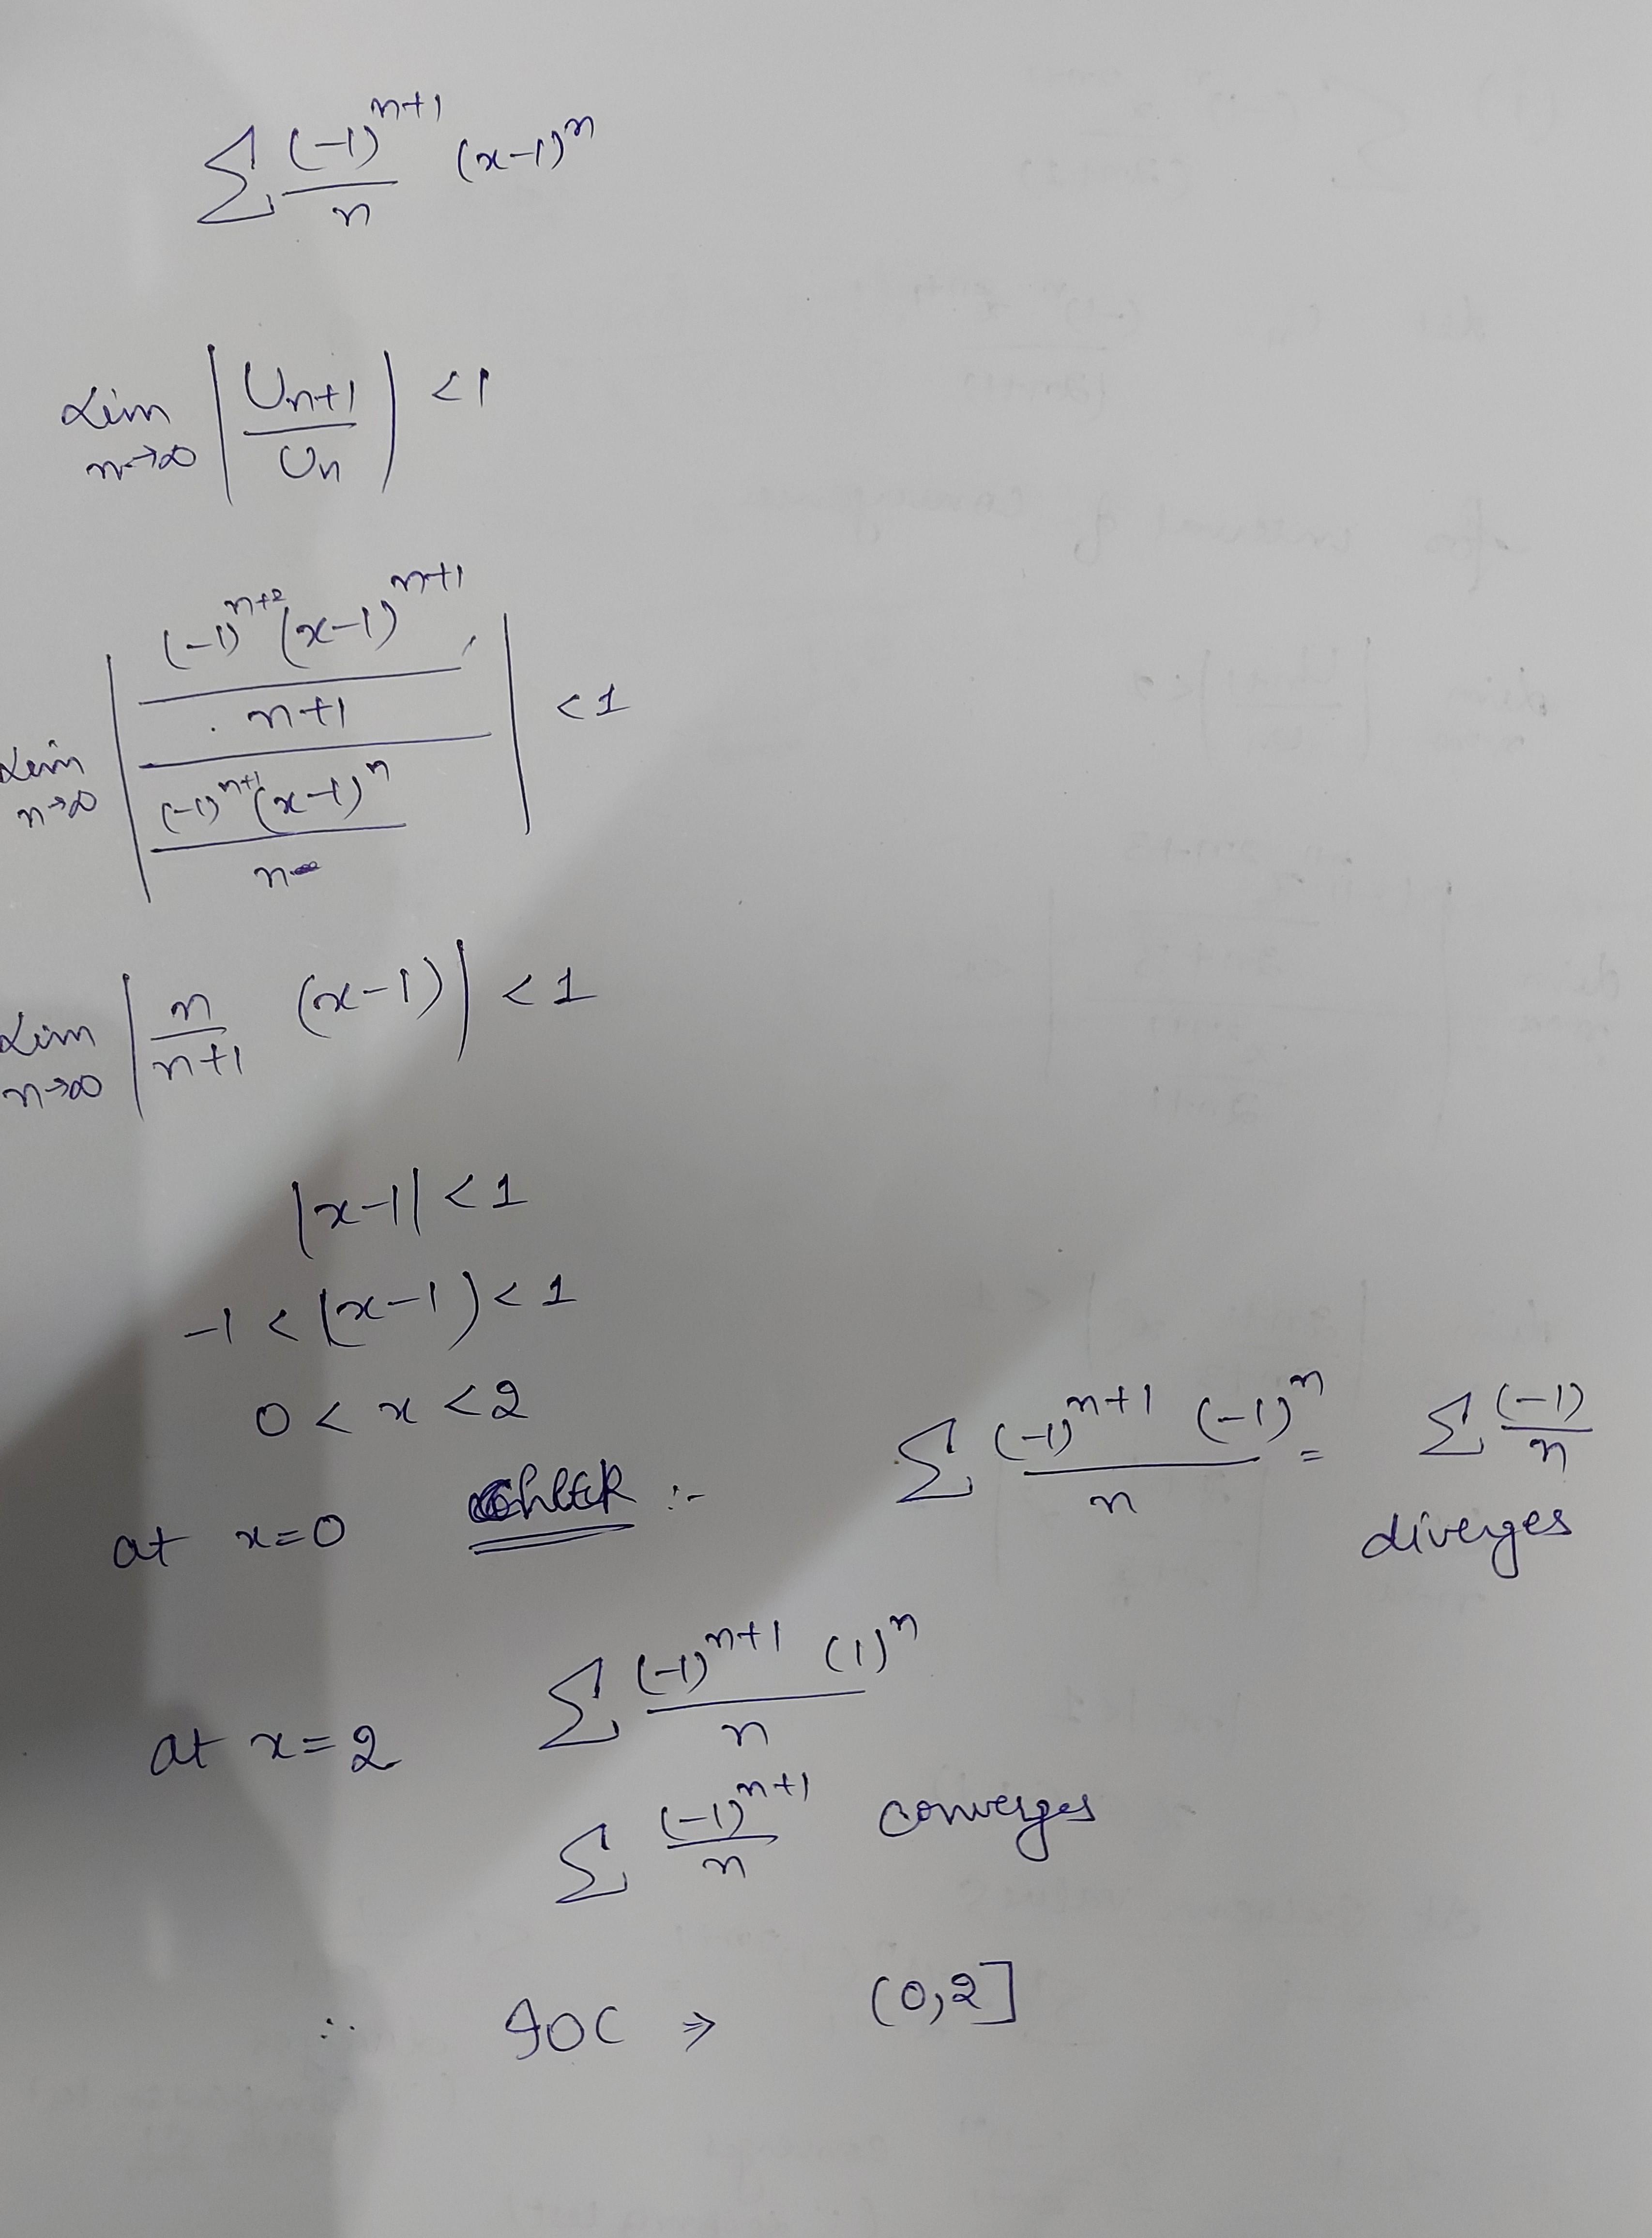 ∑ (-1)^{n+1}/n (x-1)^n
Lim n→∞ |U_{n+1}/U_n| < 1
Lim n→∞ |((-1)^{n+2} (x-1)^{n+1}/(n+1))/((-1)^{n+1} (x-1)^n/n)| < 1
Lim n→∞ |n/(n+1) (x-1)| < 1
|x-1| < 1
-1 < (x-1) < 1
0 < x < 2
at x=0 check :- ∑ (-1)^{n+1} (-1)^n/n = ∑ (-1)/n
diverges
at x=2 ∑ (-1)^{n+1} (1)^n/n
∑ (-1)^{n+1}/n converges
∴ IOC ⇒ (0,2]